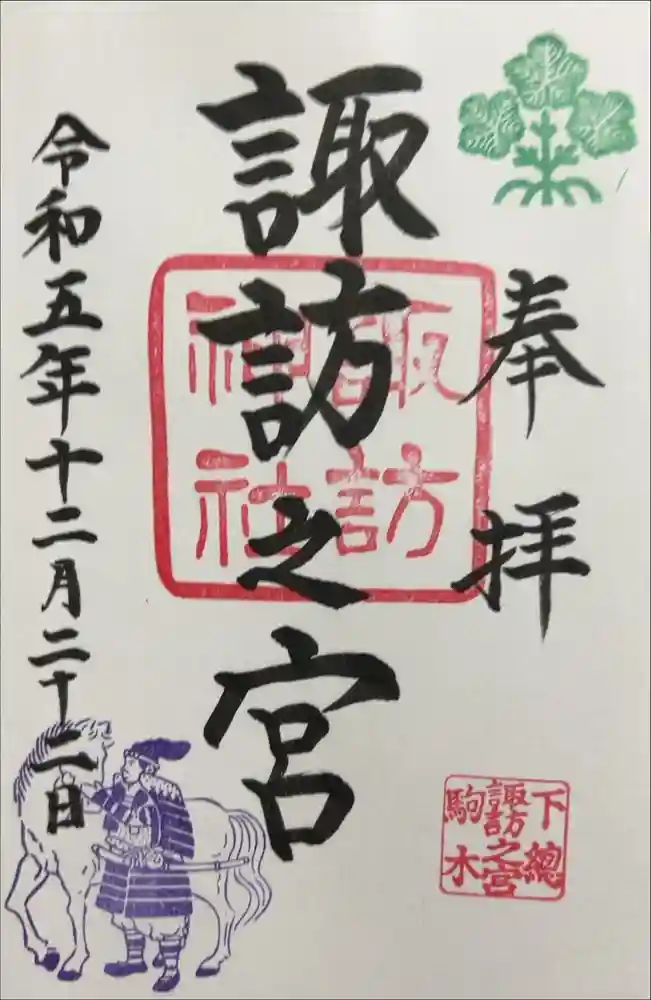 奉拝
諏訪之宮
諏訪
神社
令和五年十二月二十二日
下總
諏訪之宮
駒木